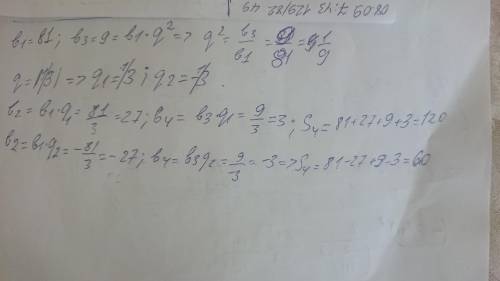 b₁=81; b₃=9=b₁·q² => q²= b₃/b₁ = 9/81 = 1/9
q=|1/3| => q₁=1/3; q₂=-1/3.
b₂=b₁·q₁= 81/3 =27; b₄= b₃·q₁= 9/3 =3; S₄=81+27+9+3=120
b₂=b₁·q₂= -81/3 =-27; b₄=b₃q₂= 9/3 = -3=>S₄=81-27+9-3=60